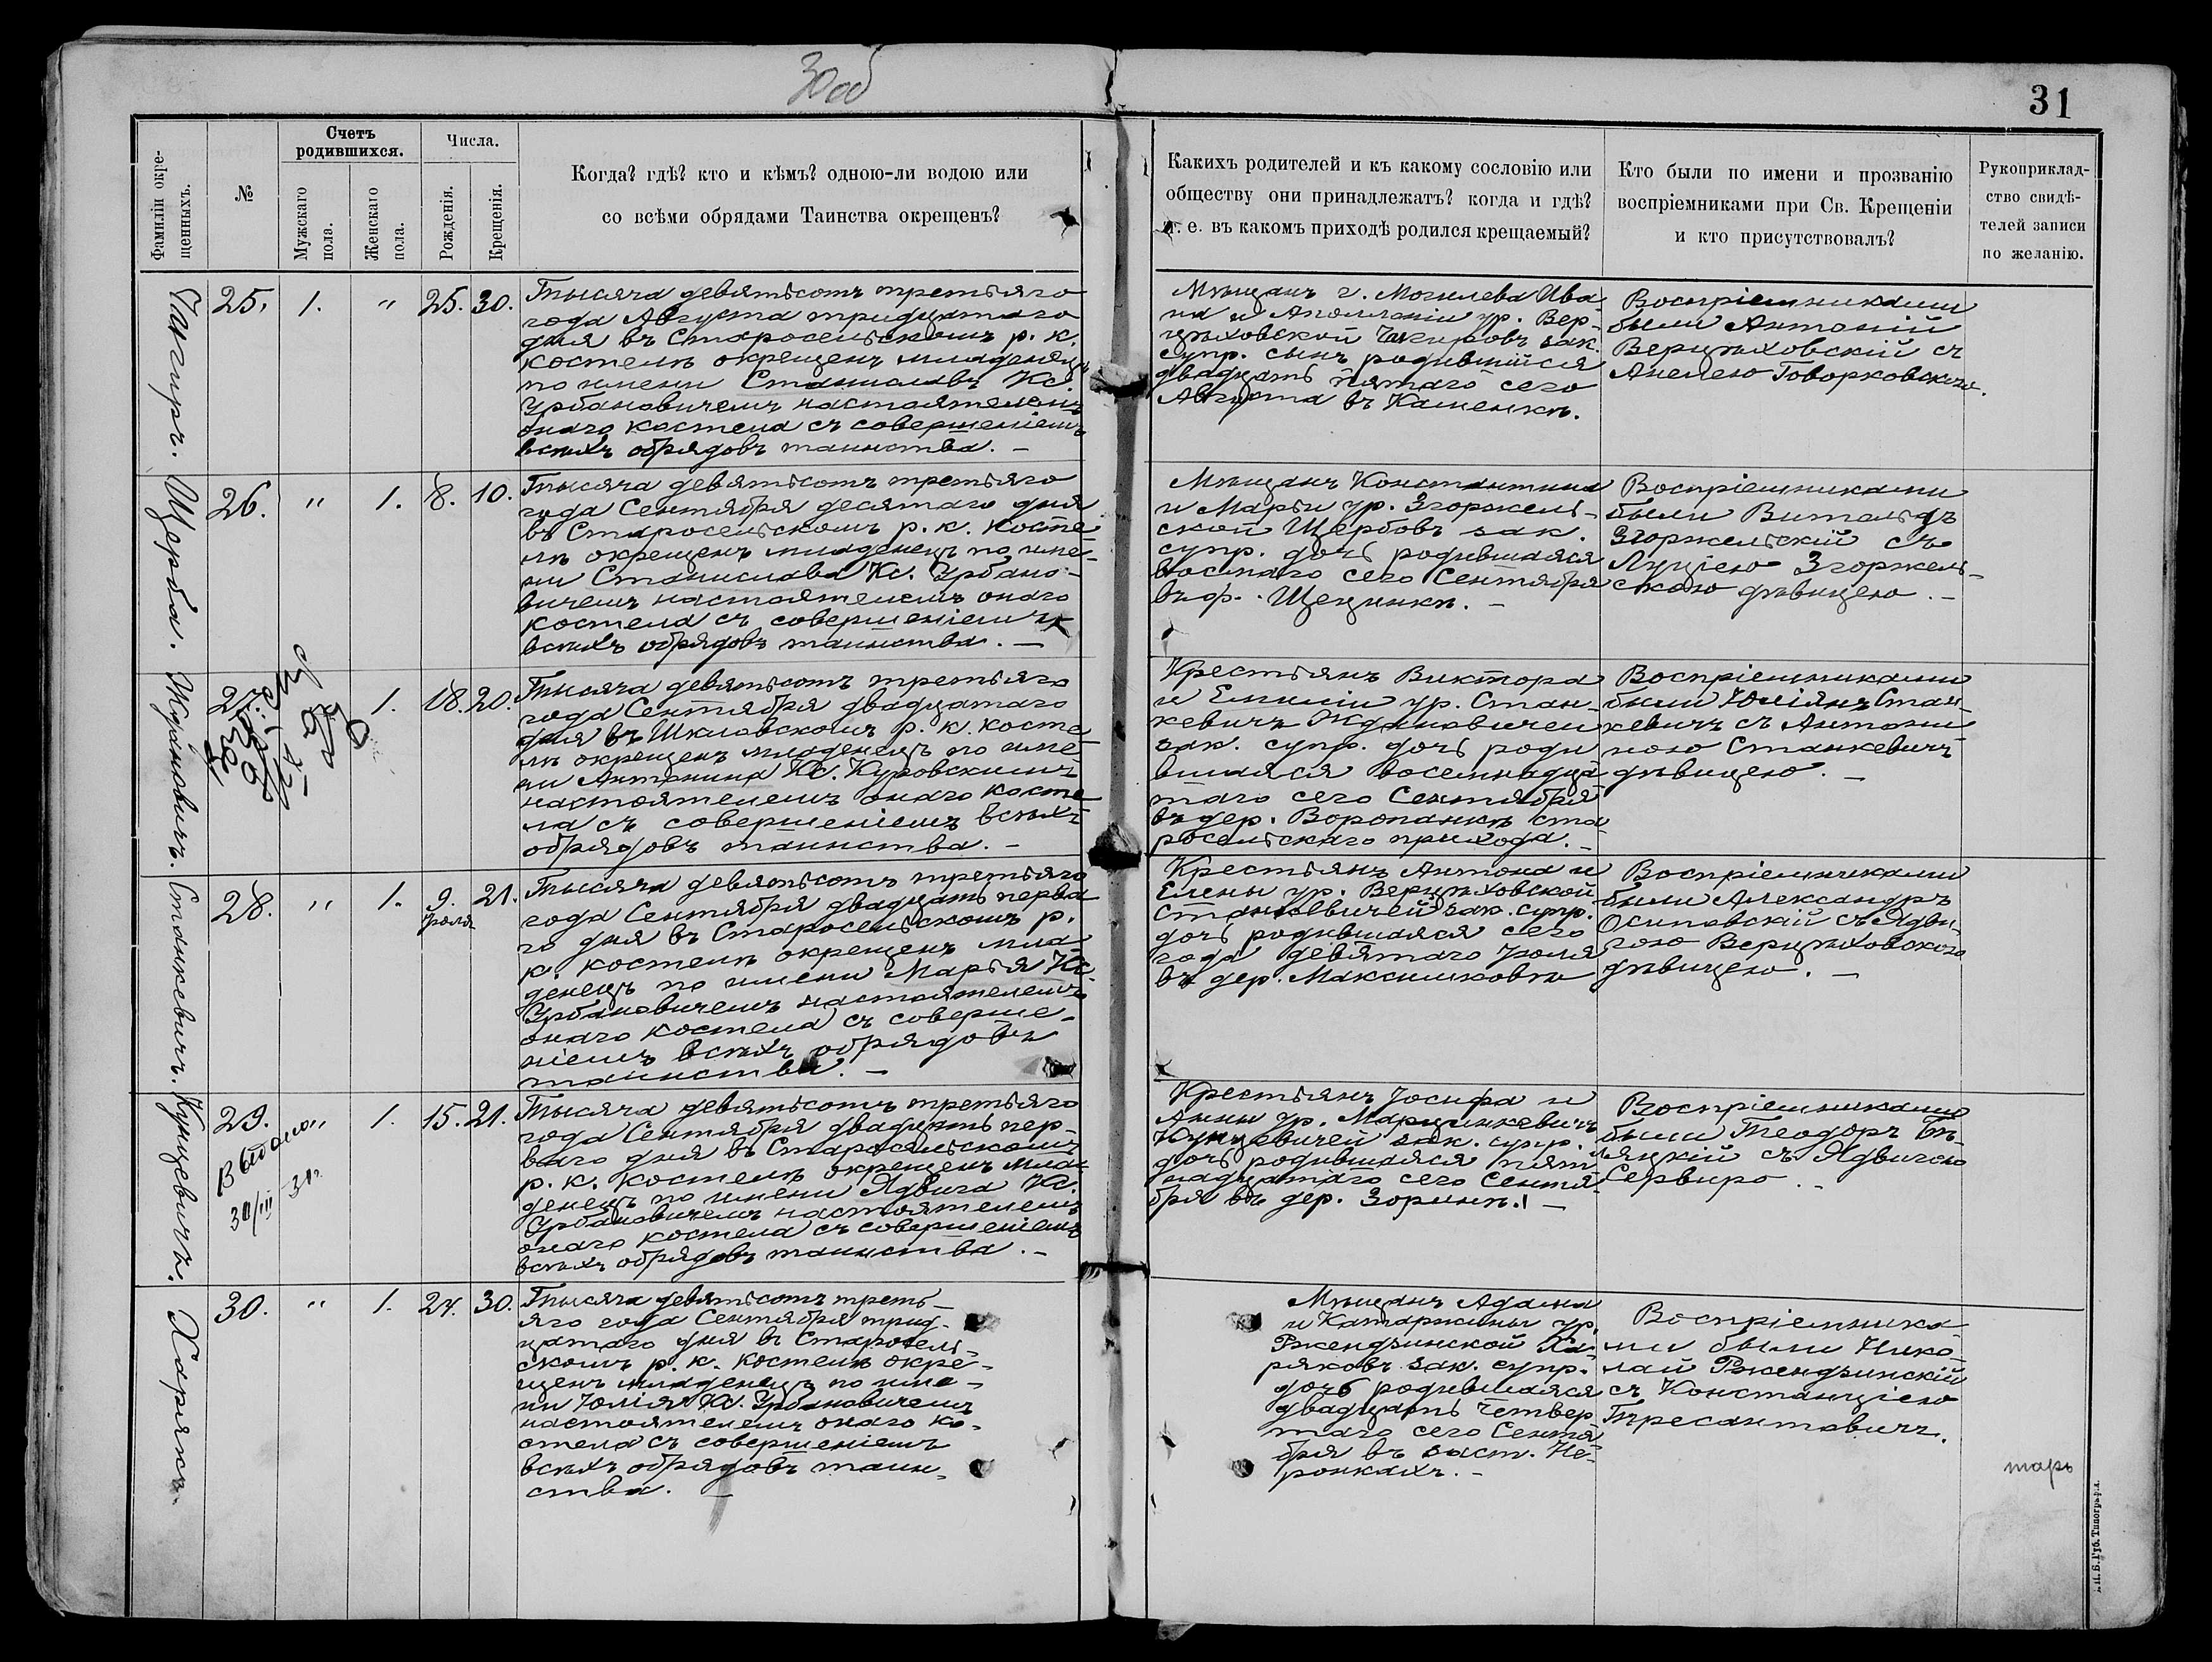 30 об
31
Фамиліи окре-
щенныхъ.
№
Счетъ
родившихся.
Мужскаго
пола.
Женскаго
пола.
Числа.
Рожденія.
Крещенія.
Когда? гдѣ? кто и кѣмъ? одною-ли водою или
со всѣми обрядами Таинства окрещенъ?
Какихъ родителей и къ какому сословію или
обществу они принадлежатъ? когда и гдѣ?
т. е. въ какомъ приходѣ родился крещаемый?
Кто были по имени и прозванію
воспріемниками при Св. Крещеніи
и кто присутствовалъ?
Рукоприклад-
ство свидѣ-
телей записи
по желанію.
25. 1. " 25. 30.
Тысяча девятьсотъ третьяго
года Августа тридцатаго
дня въ Старосельскомъ р. к.
костелѣ окрещенъ младенецъ
по имени Станиславъ Кс.
Урбановичемъ настоятелемъ
онаго костела съ совершеніемъ
всѣхъ обрядовъ таинства. —
Мѣщанъ г. Могилева Ива
на и Аполлоніи ур. Вер-
цѣховской зак.
супр. сынъ родившійся
двадцать пятаго сего
Августа въ Каменкѣ.
Воспріемниками
были Антоній
Верцѣховскій съ
Анелею Говорковскою.
Щерба.
26. " 1. 8. 10.
Тысяча девятьсотъ третьяго
года Сентября десятаго дня
въ Старосельскомъ р. к. косте-
лѣ окрещенъ младенецъ по име-
ни Станислава Кс. Урбано-
вичемъ настоятелемъ онаго
костела съ совершеніемъ
всѣхъ обрядовъ таинства. —
Мѣщанъ Константина
и Марьи ур. Згоржель-
ской Щербовъ зак.
супр. дочь родившаяся
восьмаго сего Сентября
въ ф. Щецинкѣ. —
Воспріемниками
были Витольдъ
Згоржельскій съ
Луціею Згоржель-
скою дѣвицею. —
Ждановичъ.
27. 1. 18. 20.
Тысяча девятьсотъ третьяго
года Сентября двадцатаго
дня въ Шкловскомъ р. к. косте
лѣ окрещенъ младенецъ по име-
ни Антонина Кс. Куровскимъ
настоятелемъ онаго косте
ла съ совершеніемъ всѣхъ
обрядовъ таинства. —
Крестьянъ Виктора
и Емиліи ур. Стан-
кевичъ Ждановичей
зак. супр. дочь роди
вшаяся восемнадца
таго сего Сентября
въ дер. Воропанкѣ Ста-
росельскаго прихода. —
Воспріемниками
были Юліянъ Стан
кевичъ съ Антони
ною Станкевичъ
дѣвицею. —
Станкевичъ.
28. " 1. 9. 21.
Іюля
Тысяча девятьсотъ третьяго
года Сентября двадцать перва
го дня въ Старосельскомъ р.
к. костелѣ окрещенъ мла-
денецъ по имени Марья Кс.
Урбановичемъ настоятелемъ
онаго костела съ соверше-
ніемъ всѣхъ обрядовъ
таинства. —
Крестьянъ Антона и
Елены ур. Верцѣховской
Станкевичей зак. супр.
дочь родившаяся сего
года девятаго Іюля
въ дер. Максимовкѣ
Воспріемниками
были Александръ
Осиповскій съ Ядви-
гою Верцѣховскою
дѣвицею. —
Кунцевичъ.
29. " 1. 15. 21.
Выдано
30/III 31г.
Тысяча девятьсотъ третьяго
года Сентября двадцать пер-
ваго дня въ Старосельскомъ
р. к. костелѣ окрещенъ мла-
денецъ по имени Ядвига Кс.
Урбановичемъ настоятелемъ
онаго костела съ совершеніемъ
всѣхъ обрядовъ таинства. —
Крестьянъ Іосифа и
Анны ур. Марцинкевичъ
Кунцевичей зак. супр.
дочь родившаяся пят-
надцатаго сего Сентя-
бря въ дер. Зоринѣ. —
Воспріемниками
были Теодоръ Бѣ-
ляцкій съ Ядвигою
Сервиро. —
Харякъ.
30. " 1. 24. 30.
Тысяча девятьсотъ треть-
яго года Сентября трид-
цатаго дня въ Старосель-
скомъ р. к. костелѣ окре-
щенъ младенецъ по име-
ни Юлія Кс. Урбановичемъ
настоятелемъ онаго ко-
стела съ совершеніемъ
всѣхъ обрядовъ таин-
ства. —
Мѣщанъ Адама
и Катаржины ур.
Ржендзинской Ха-
ряковъ зак. супр.
дочь родившаяся
двадцать четвер
таго сего Сентя-
бря въ заст. Не-
ронкахъ. —
Воспріемника-
ми были Нико-
лай Ржендзинскій
съ Констанціею
тарь
Губ. Типографія.